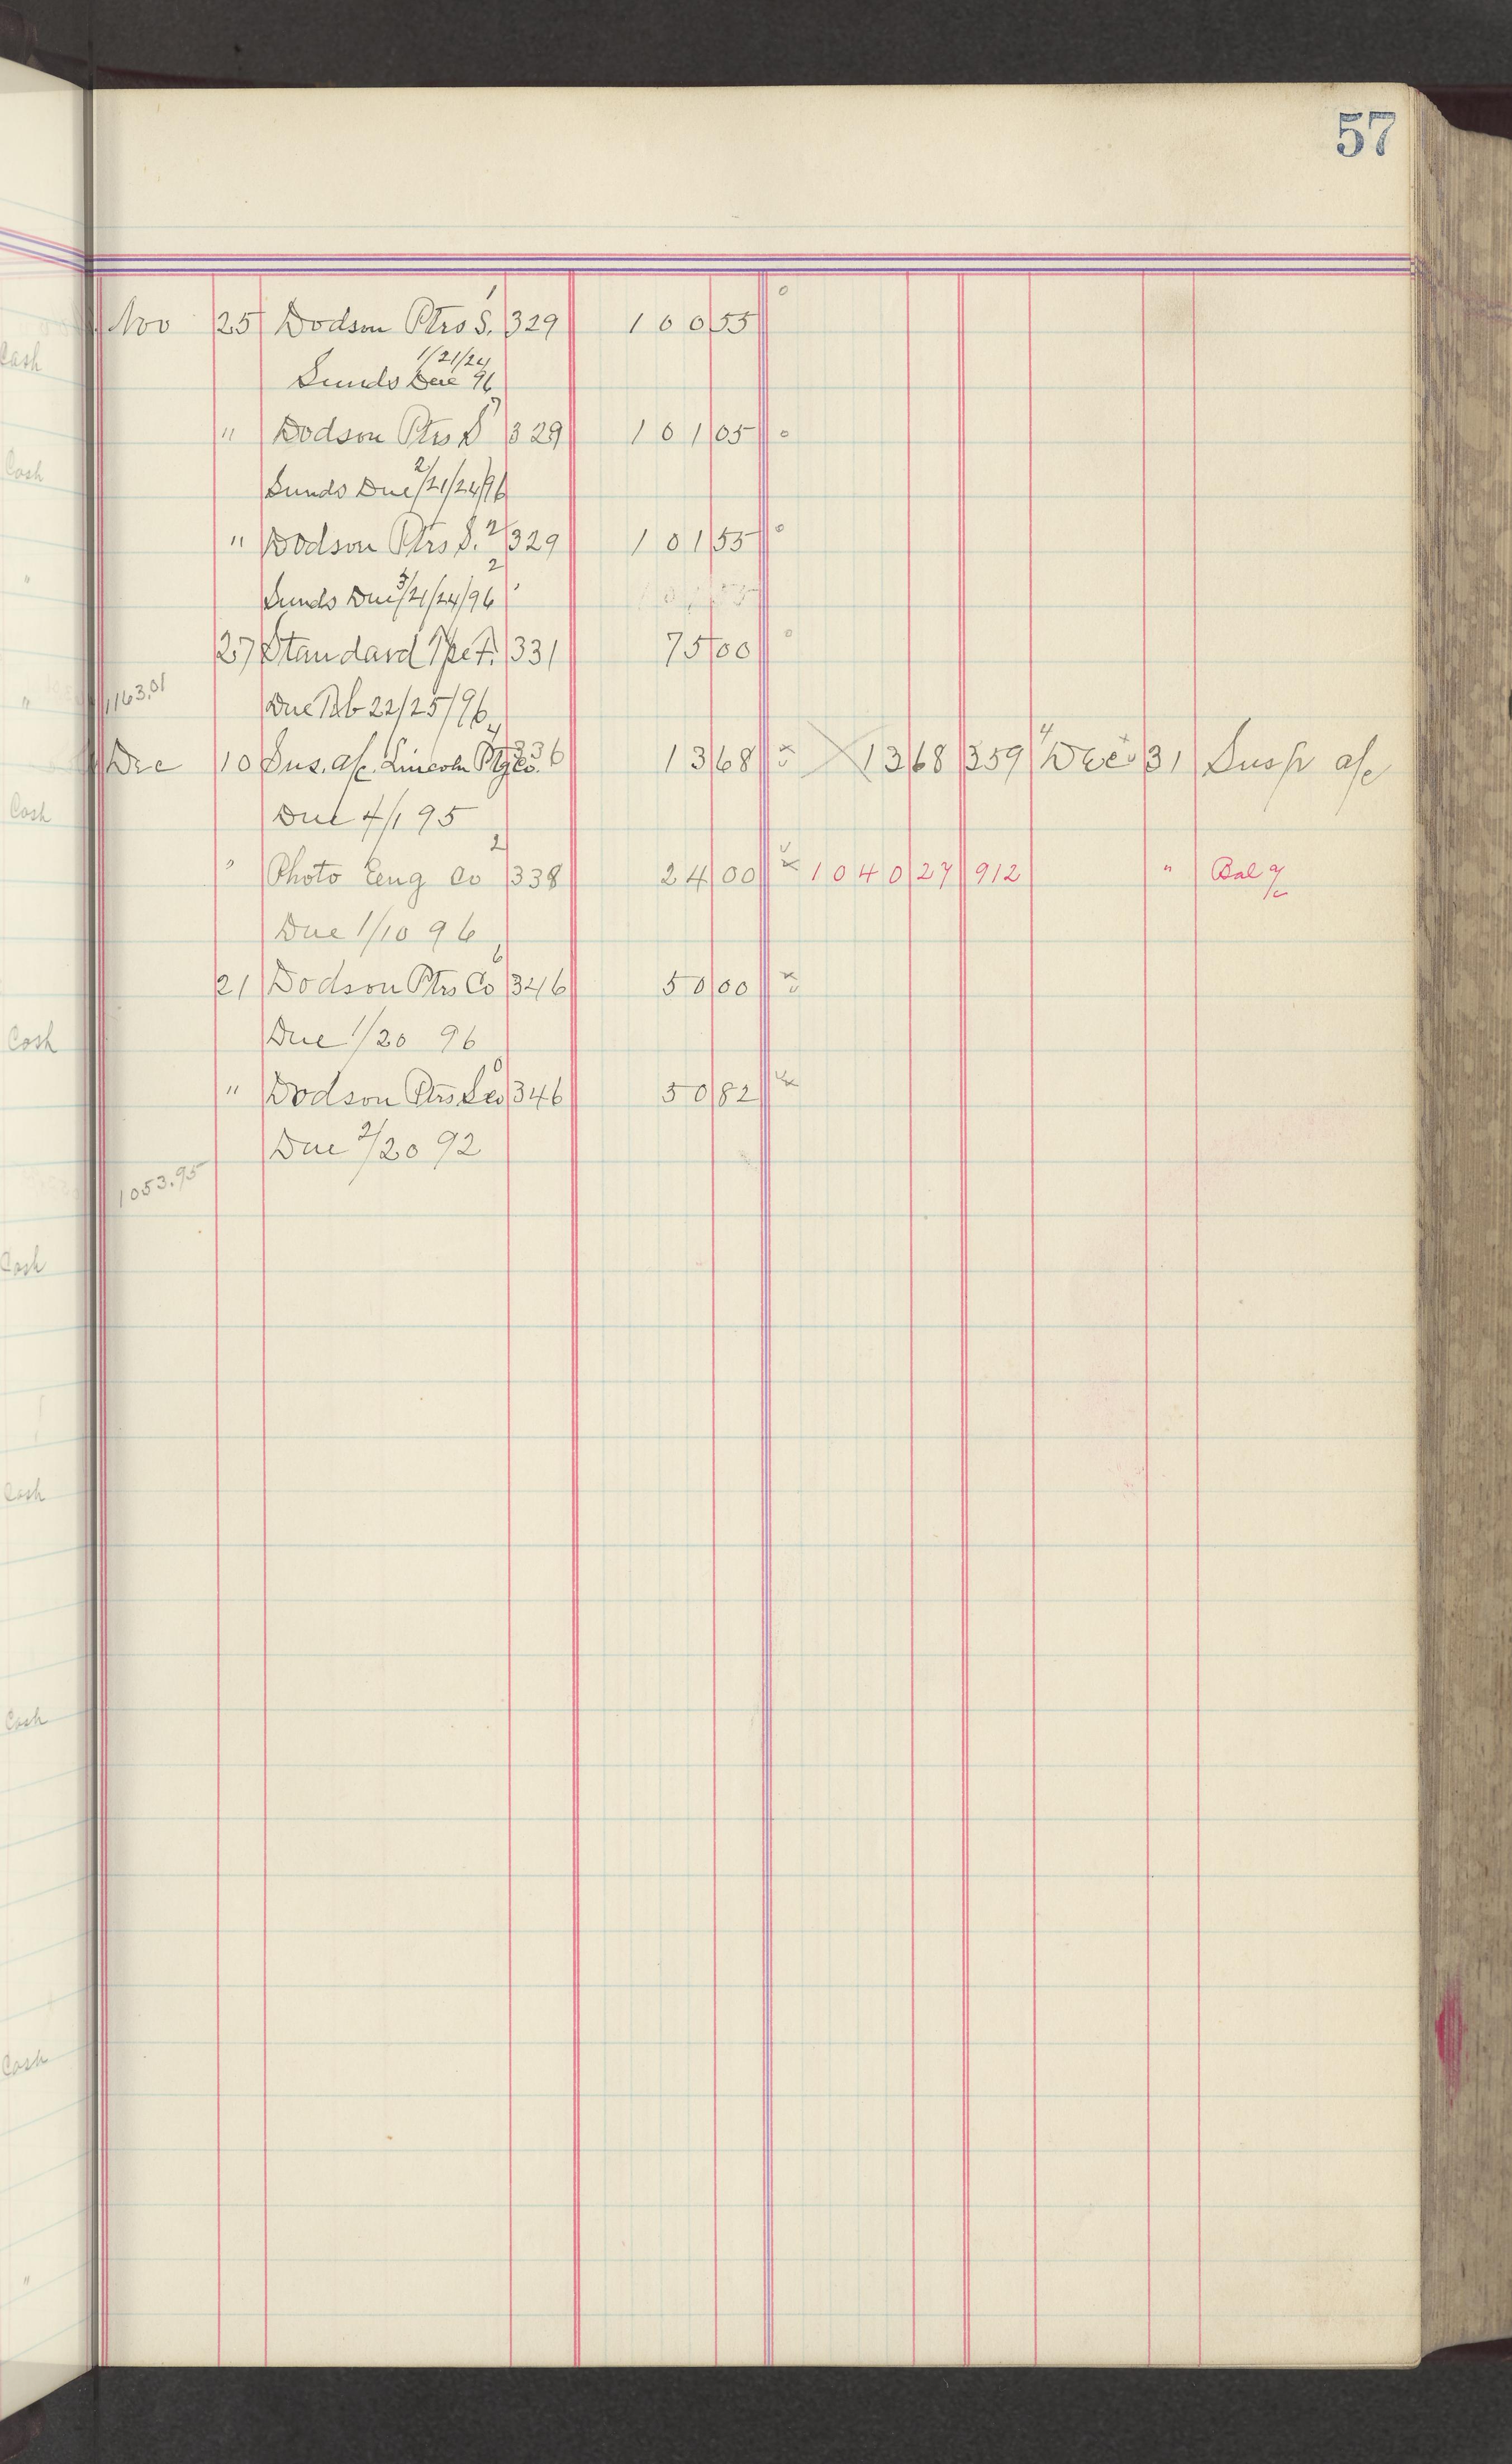 57
Nov 25 Dodson Ptrs S. 329 100 55
Sunds Due 1/21/24 96
" Dodson Ptrs S 329 101 05
Sunds Due 2/21/24/96
" Dodson Ptrs S. 329 101 55
Sunds Due 3/21/24/96
27 Standard 331 75 00
1163.01
Due Feb 22/25/96
Dec 10 Sus. a/c. Lincoln Ptg Co. 336 13 68 13 68 359 Dec 31 Susp a/c
Due 4/1 95
" Photo Eng Co 338 24 00 1040 27 912 " Bal a/c
Due 1/10 96
21 Dodson Ptrs Co 346 50 00
Due 1/20 96
" Dodson Ptrs S Co 346 50 82
Due 2/20 92
1053.95
Cash
Cash
"
"
Cash
Cash
Cash
Cash
Cash
Cash
"